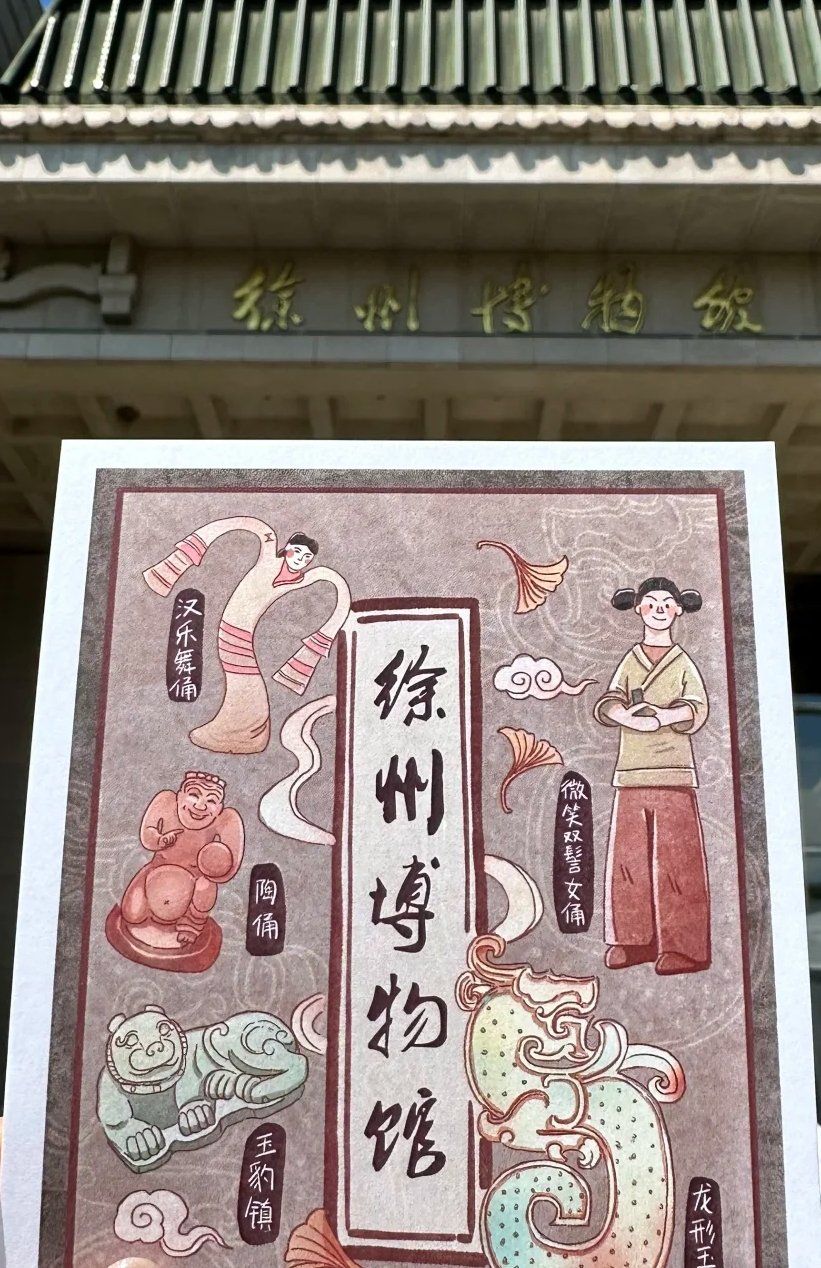 徐州博物馆
徐州博物馆
汉乐舞俑
微笑双髻女俑
陶俑
玉豹镇
龙形玉